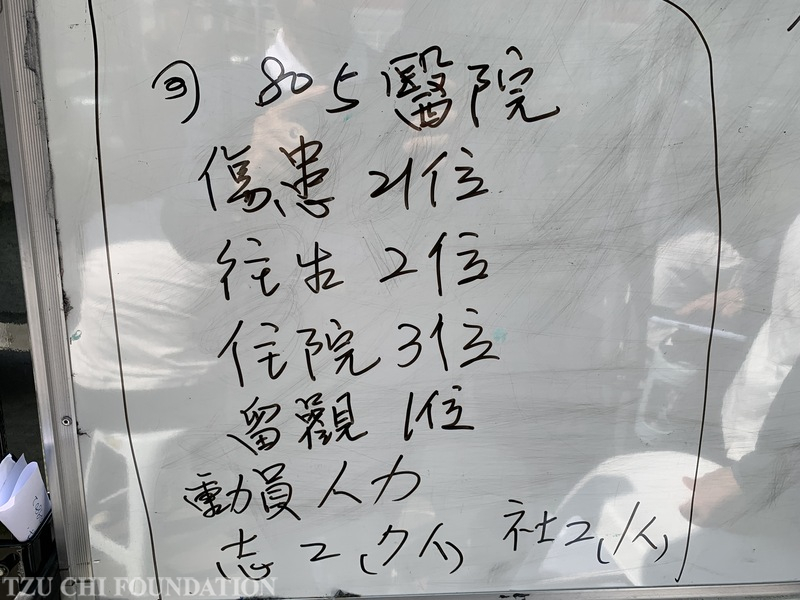 ③ 805醫院
傷患 21位
往生 2位
住院 3位
留觀 1位
動員人力
志工(7人) 社工(1人)
TZU CHI FOUNDATION